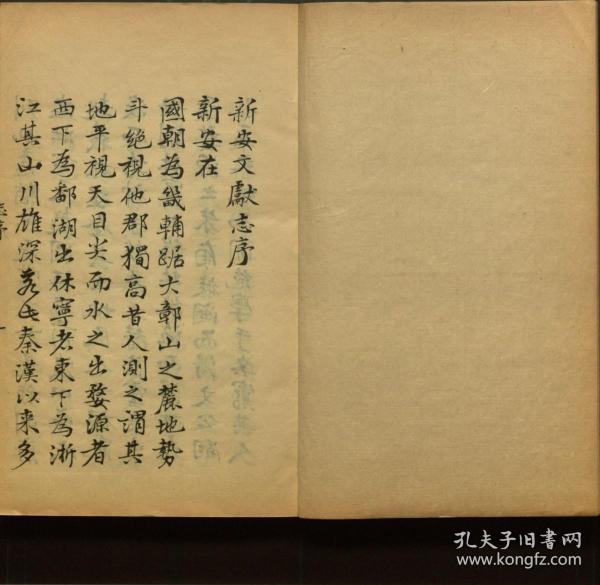 新安文獻志序
新安在
國朝為畿輔踞大鄣山之麓地勢
斗絶視他郡獨高昔人測之謂其
地平視天目尖而水之出婺源者
西下為鄱湖出休寧者東下為浙
江其山川雄深若此秦漢以来多
志序
一
孔夫子旧書网
www.kongfz.com